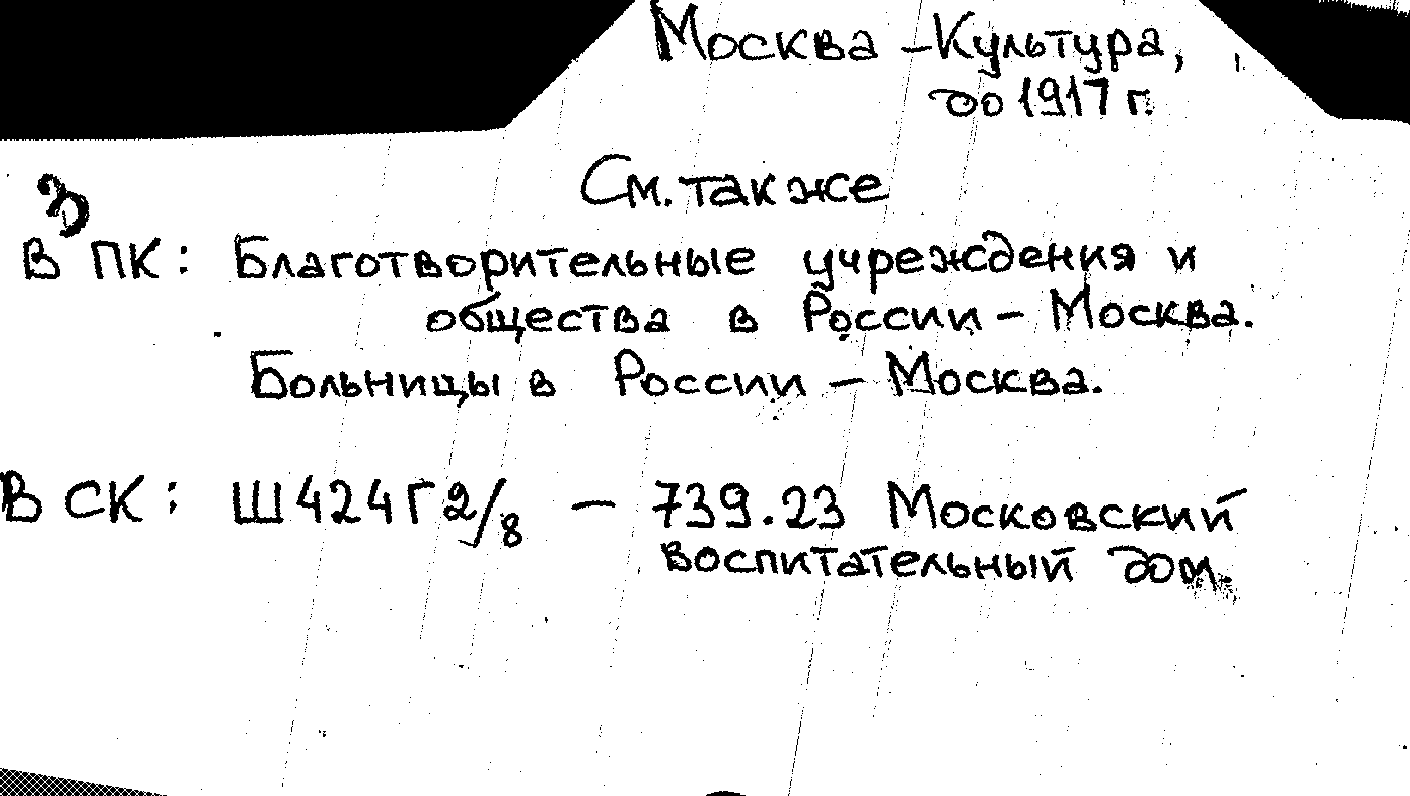 Москва - Культура,
до 1917 г.
См. также
В ПК: Благотворительные учреждения и
общества в России - Москва.
Больницы в России - Москва.
В СК: Ш424Г2/8 - 739.23 Московский
воспитательный дом.